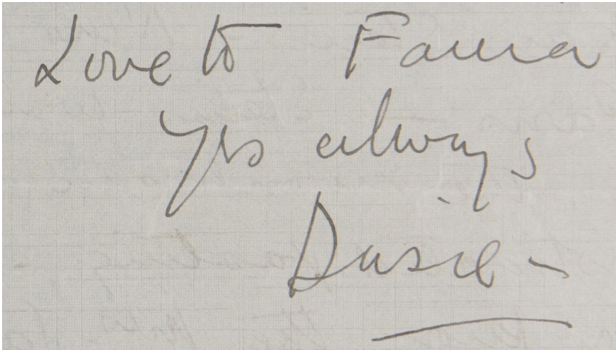 Love to Fauna
Yrs always
Dusie -